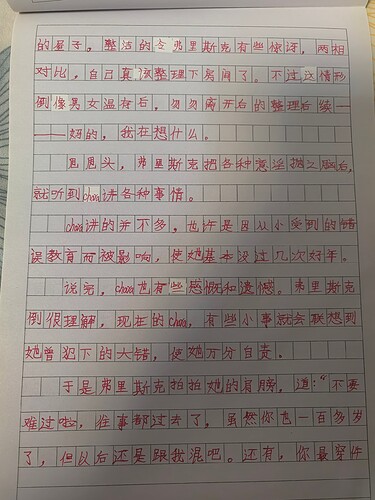 的屋子，整洁的令弗里斯克有些惊讶，两相
对比，自己真该整理下房间了。不过，这情形
倒像男女温存后，匆匆离开后的整理后续——
——妈的，我在想什么。
晃晃头，弗里斯克把各种意淫抛之脑后，
就听到chara讲各种事情。
chara讲的并不多，也许是因从小受到的错
误教育而被影响，使她基本没过几次好年。
说完，chara也有些感慨和遗憾。弗里斯克
倒很理解，现在的chara，有些小事就会联想到
她曾犯下的大错，使她万分自责。
于是弗里斯克拍拍她的肩膀，道：“不要
难过啦，往事都过去了，虽然你也一百多岁
了，但以后还是跟我混吧。还有，你最穿件